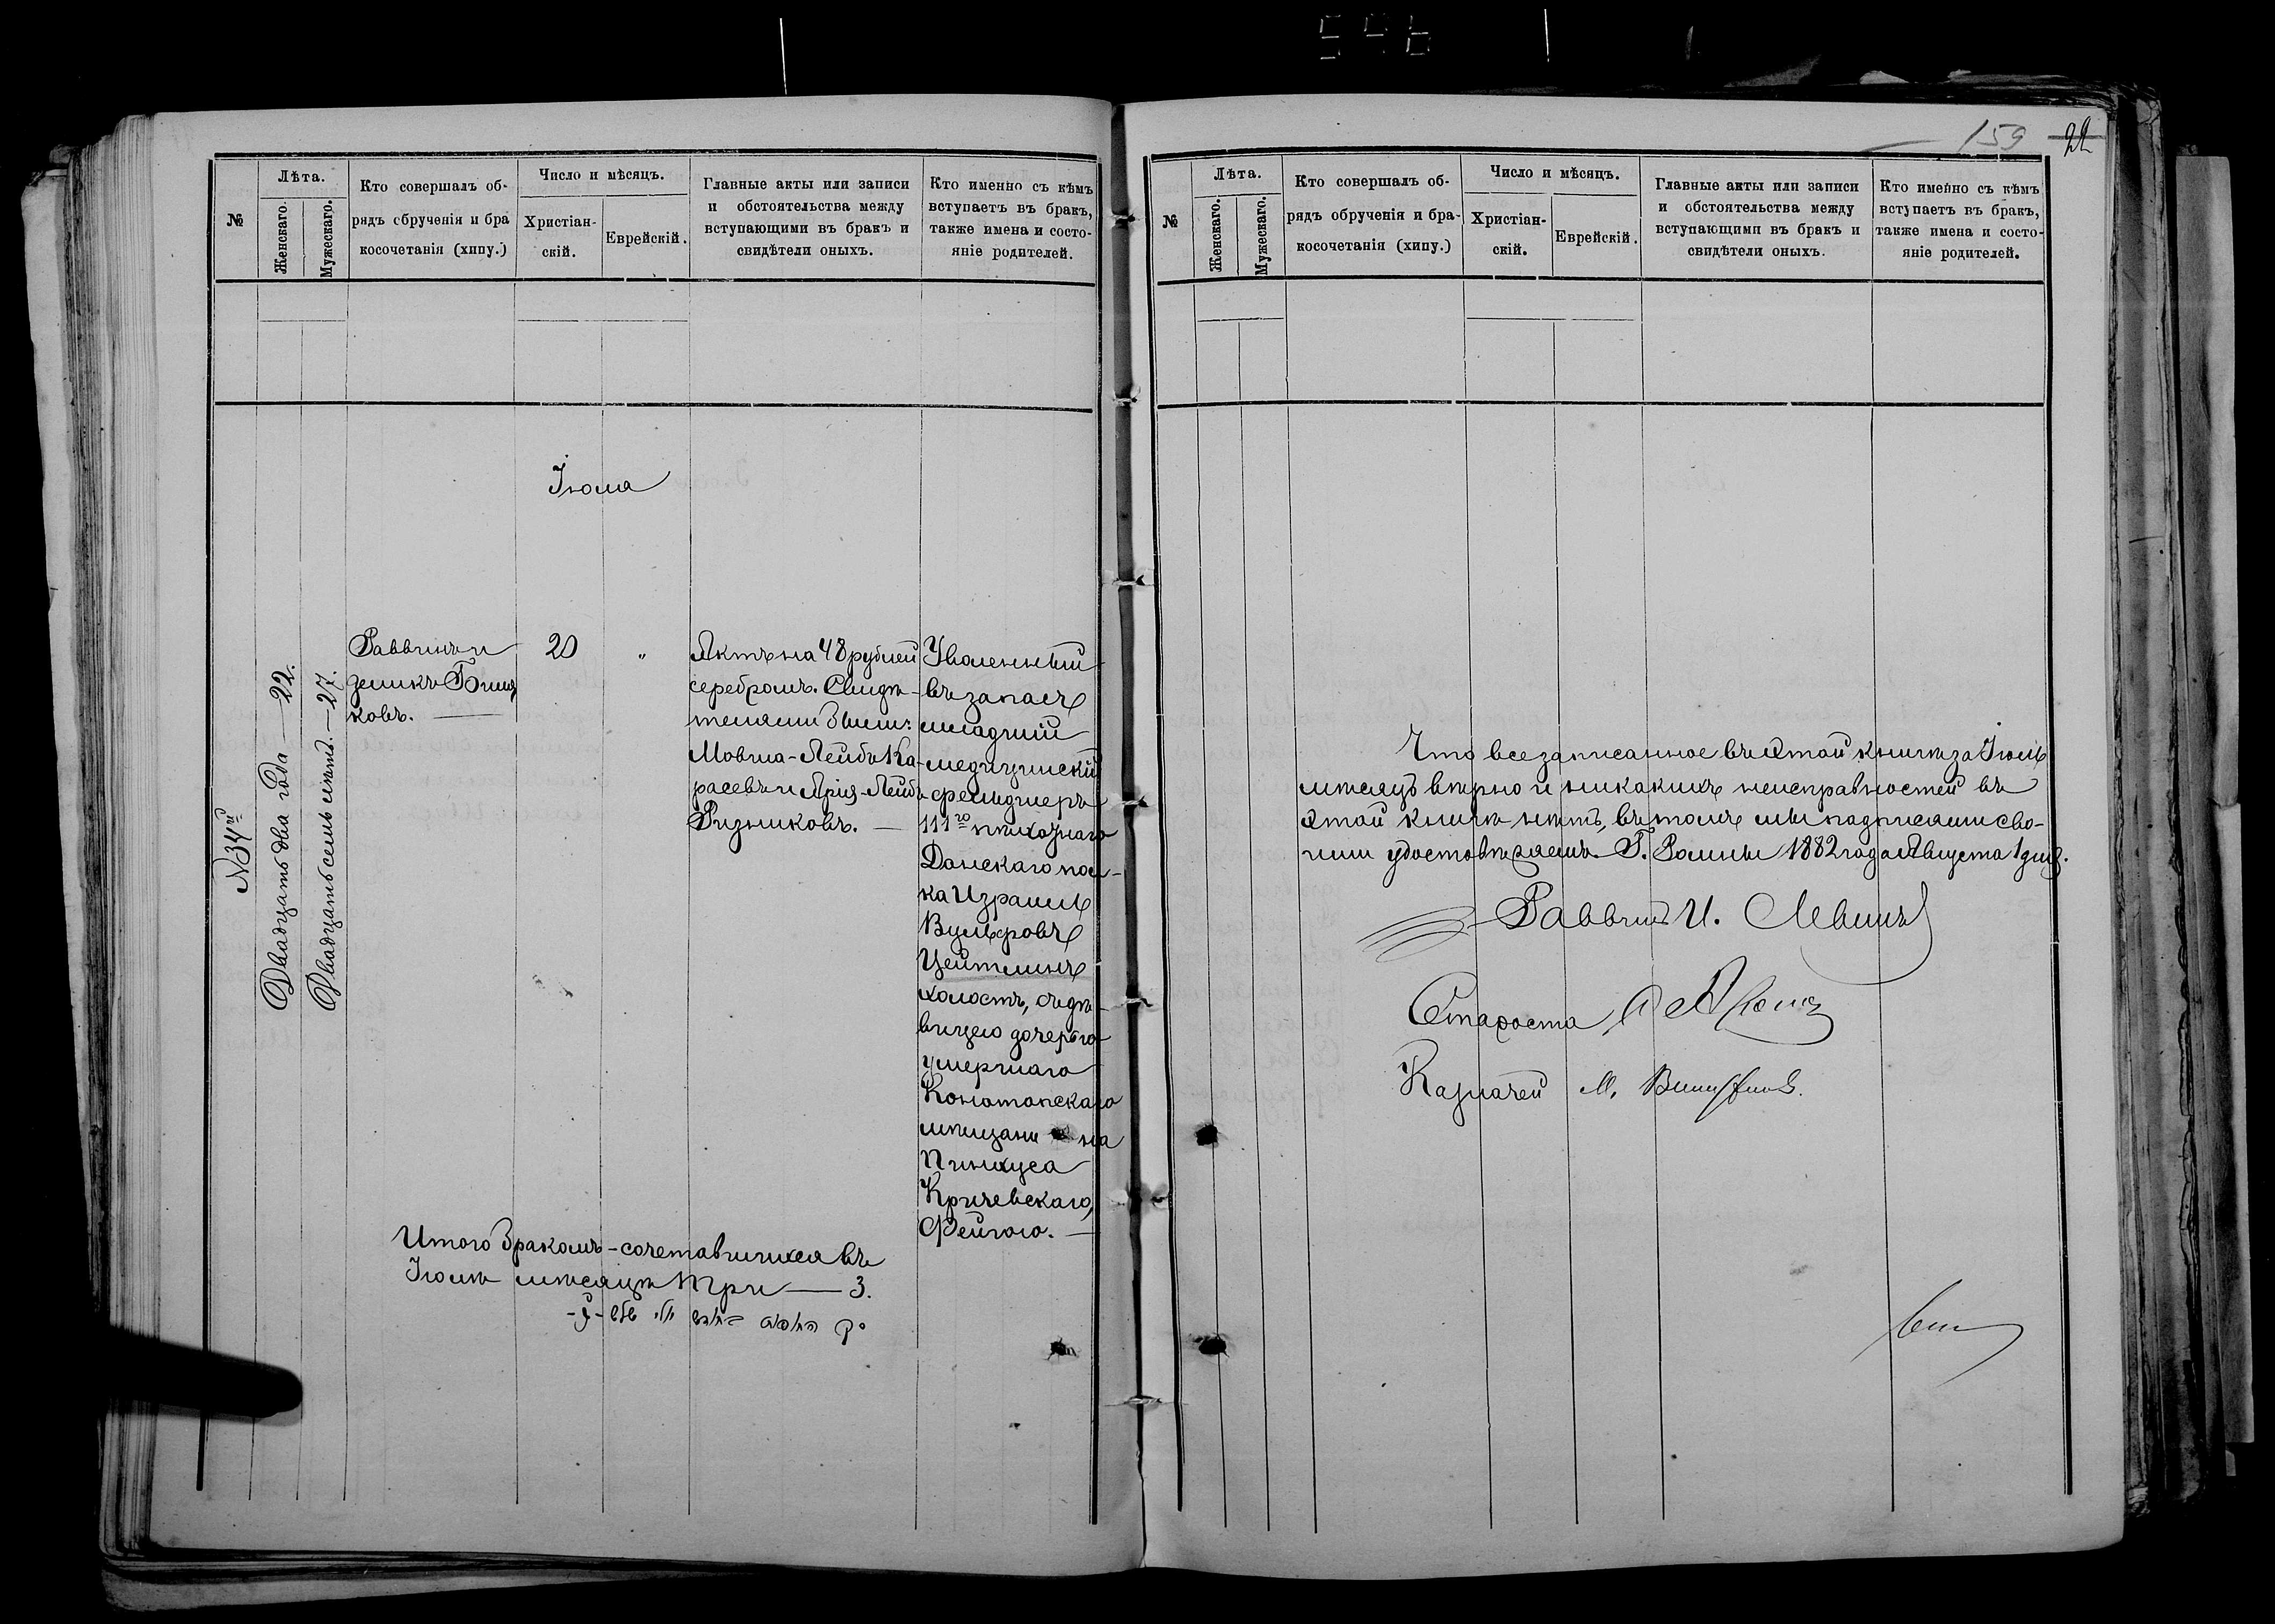 №
Лѣта.
Женскаго.
Мужескаго.
Кто совершалъ об-
рядъ обрученія и бра
косочетанія (хипу.)
Число и мѣсяцъ.
Христіан-
скій.
Еврейскій.
Главные акты или записи
и обстоятельства между
вступающими въ бракъ и
свидѣтели оныхъ.
Кто именно съ кѣмъ
вступаетъ въ бракъ,
также имена и состо-
яніе родителей.
Іюля
№34й
Двадцать два года — 22.
Двадцать семь лѣтъ. — 27.
Раввинъ и
ковъ. —
20
"
Актъ на 48 рублей
серебромъ. Свидѣ-
телями были:
Мовша-Лейбъ Ка-
расевъ и Лейбъ
Рѣзниковъ. —
Уволенный
въ запасъ
младшій
медицинскій
фельдшеръ
111го пѣхотнаго
Донскаго пол-
ка Израиль
Вульфовъ
Цейтлинъ
холостъ, съ дѣ-
вицею дочерью
умершаго
Конотопскаго
мѣщанина
Пинхуса
Кричевскаго,
Фейгою. —
Итого бракомъ-сочетавшихся въ
Іюлѣ мѣсяцѣ три — 3.
159 22
№
Лѣта.
Женскаго.
Мужескаго.
Кто совершалъ об-
рядъ обрученія и бра-
косочетанія (хипу.)
Число и мѣсяцъ.
Христіан-
скій.
Еврейскій.
Главные акты или записи
и обстоятельства между
вступающими въ бракъ и
свидѣтели оныхъ.
Кто именно съ кѣмъ
вступаетъ въ бракъ,
также имена и состо-
яніе родителей.
Что все записанное въ этой книгѣ за Іюль
мѣсяцъ вѣрно и никакихъ неисправностей въ
этой книгѣ нѣтъ, въ томъ мы подписями сво-
ими удостовѣряемъ. Г. Ромны 1882 года Августа 1 дня.
Раввинъ И. Левинъ
Староста
Казначей М.